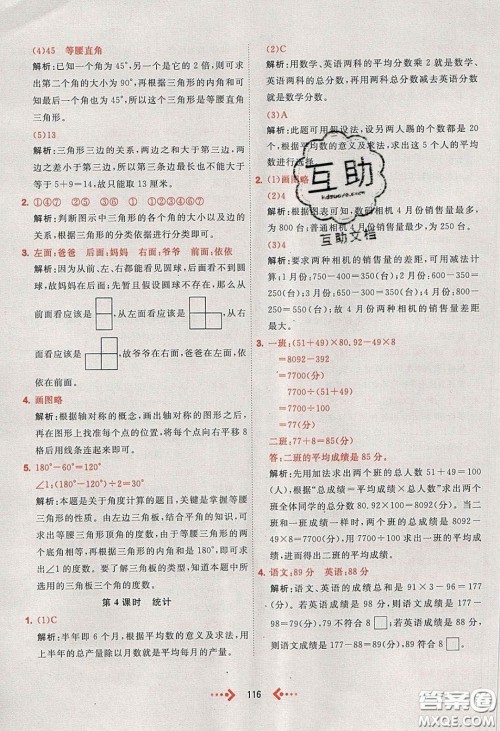 (4)45 等腰直角
解析:已知一个角为45°,另一个角是它的2倍,则可以求
出第二个角的大小为90°,再根据三角形的内角和可
知最后一个内角是45°,所以该三角形是等腰直角
三角形。
(5)13
解析:三角形三边的关系,两边之和大于第三边,两边
之差小于第三边。所以根据已知可知,第三边应该小
于5+9=14,故只能取13厘米。
2. ①④⑦ ②⑤ ③⑥ ①②④⑥⑦
解析:判断图示中三角形各个角的大小以及边的关
系,根据三角形的分类求解。
3. 左面:爸爸 后面:妈妈 右面:爷爷 前面:依依
解析:根据前面只能看到圆球,后面不能看到圆球,所
以妈妈在后面,依依在前面。从左面看应该是
前面看应该是 ,从左面看应该是 ,从右
面看应该是 ,故爷爷在右面,爸爸在左面,
依依在前面。
4. 画图略
解析:根据轴对称的概念,画出轴对称的图形之后,再
在图形上找准每个点的位置,将每个点向右平移8格
后依次连起来。
5. 180°-60°=120°
∠1:(180°-120°)÷2=30°
解析:本题是关于角度计算的题,关键是掌握等腰三
角形顶角的求法。由左边三角板,结合平角的知识,可
以求出等腰三角形顶角的度数,根据等腰三角形的两
个底角相等,再根据三角形的内角和是180°,即可求
出∠1的度数。要了解三角板的类型,根据类型知道
本题所选用的三角板三个角的度数。
第4课时 统计
1. (1)C
解析:半年即6个月,根据平均数的意义及求法,用上
半年的总产量除以月数就是平均每月的产量。
(2)C
解析:用数学、英语两科的平均分数乘2就是数学、英
语两科的总分数,再用两科总分数减去英语分数就
是数学分数。
(3)A
解析:此题可用假设法,设另两人踢的个数都是20
个,根据平均数的意义及求法,求出这四个人的平均
数进行选择。
(1)画图略
解析:根据图表可知,数码相机4月份销售量最多,
为800台;普通相机
(3)4
解析:要求两种相机的销售量的差距,可用减法计
算:1月份:750-400=350(台);2月份:700-
450=250(台);3月份:600-500=100(台);4月份:
800-300=500(台);故4月份两种相机的销售量差
距最大。
3. 一班:(51+49)×80.92-49×8
=8092-392
=7700(分)
7700÷(51+49)=77(分)
二班:77+8=85(分)
答:二班的平均成绩是85分。
解析:先用加法求出两个班的总人数51+49=100(人),
根据“总成绩=平均成绩×总人数”求出两个班
全体同学的总成绩为80.92×100=8092(分)。
5. 语文:89分 英语:88分
解析:语文和英语的总成绩和为91×3-96=177
(分)。若英语成绩是98分,则语文成绩是177-
98=79(分),不符合8□;若英语成绩是88分,
则语文成绩是177-88=89(分),符合8□。
116
互助
hdzuoye.com
互助文档
答案圈
MXQE.COM